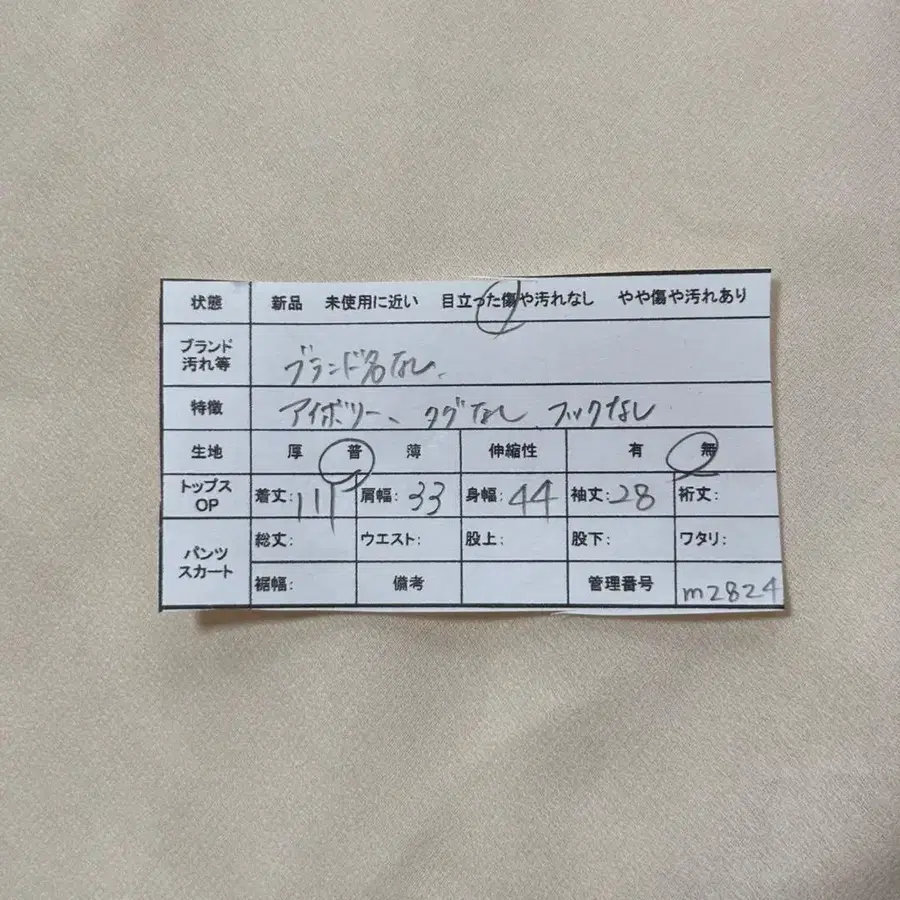 状態 新品 未使用に近い 目立った傷や汚れなし やや傷や汚れあり
ブランド
汚れ等
ブランド名なし、
特徴 アイボリー、タグなし フックなし
生地 厚 普 薄 伸縮性 有 無
トップス
OP
着丈:111 肩幅:33 身幅:44 袖丈:28 裄丈:
パンツ
スカート
総丈: ウエスト: 股上: 股下: ワタリ:
裾幅: 備考 管理番号 m2824